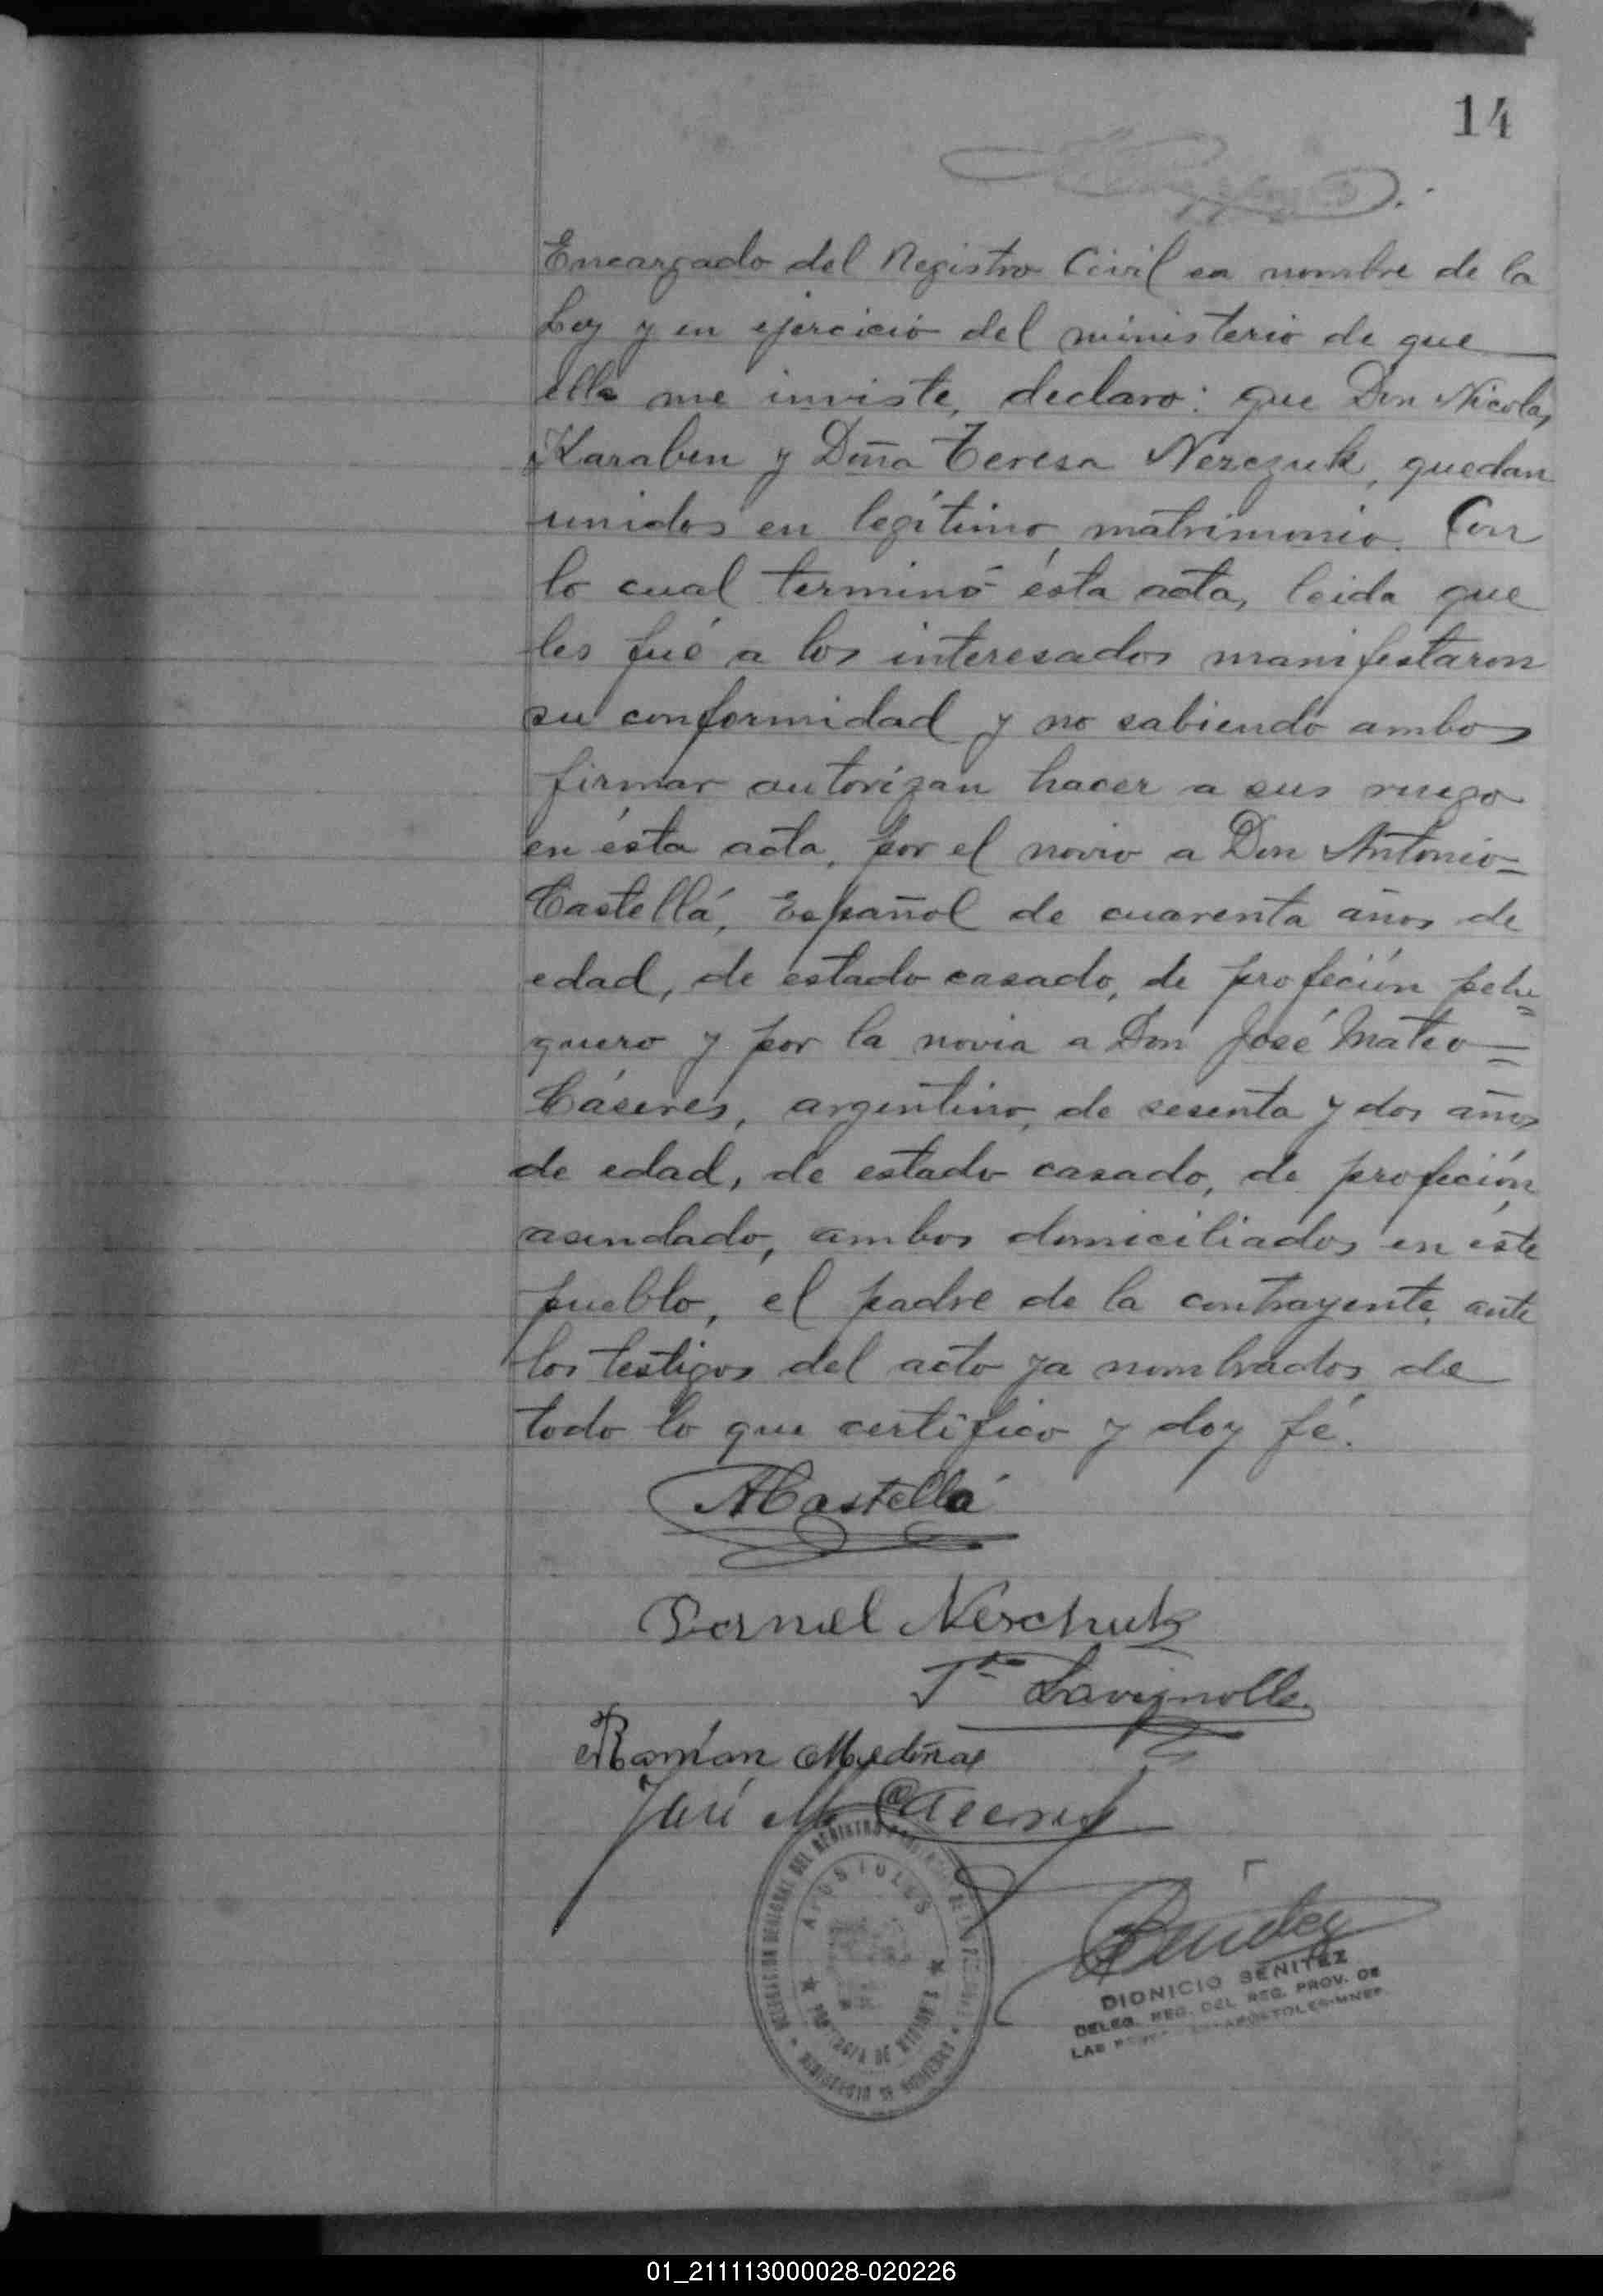 14
Encargado del Registro Civil en nombre de la
Ley y en ejercicio del ministerio de que
ella me inviste, declaro: que Don Nicolas
Karaben y Doña Teresa Nerczuk, quedan
unidos en legítimo matrimonio. Con
lo cual terminó ésta acta, leida que
les fué a los interesados manifestaron
su conformidad y no sabiendo ambos
firmar autorizan hacer a sus ruego
en ésta acta, por el novio a Don Antonio=
Castellá, Español de cuarenta años de
edad, de estado casado, de profeción pelu=
quero y por la novia a Don José Mateo=
Cáseres, argentino, de sesenta y dos años
de edad, de estado casado, de profeción
asendado, ambos domiciliados en éste
pueblo, el padre de la contrayente, ante
los testigos del acto ya nombrados de
todo lo que certifico y doy fé.
ACastellá
Neschuk
Lavignolle
Ramón Medina
José M. Caceres
DELEGACION REGIONAL DEL REGISTRO
APOSTOLES
Benitez
DIONICIO BENITEZ
DELEG. REG. DEL REG. PROV. DE
LAS APOSTOLES-MNES.
01_211113000028-020226